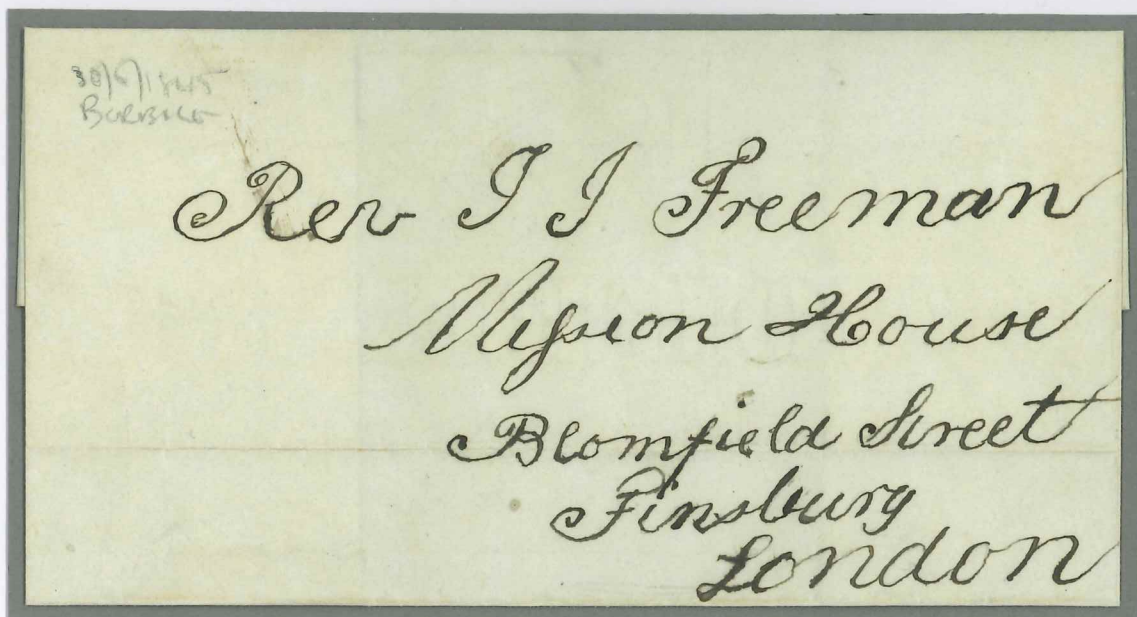 30/6/1845
Rev J J Freeman
Mission House
Blomfield Street
Finsbury
London